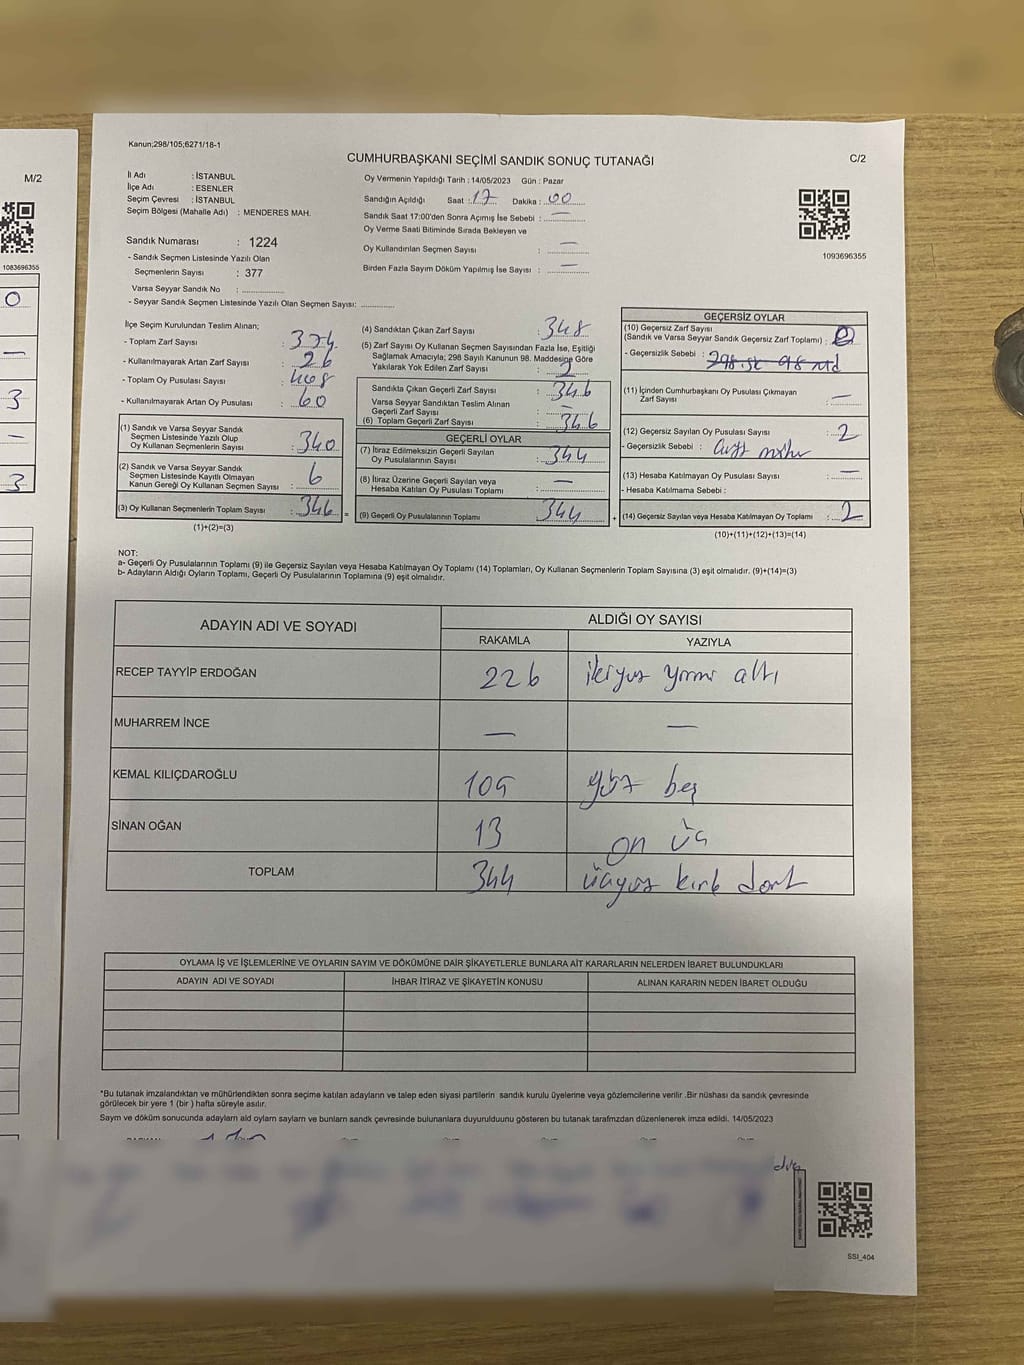 M/2
1083696355
0
—
3
—
3
Kanun;298/105;6271/18-1
CUMHURBAŞKANI SEÇİMİ SANDIK SONUÇ TUTANAĞI
C/2
İl Adı : İSTANBUL
İlçe Adı : ESENLER
Seçim Çevresi : İSTANBUL
Seçim Bölgesi (Mahalle Adı) : MENDERES MAH.
Sandık Numarası : 1224
- Sandık Seçmen Listesinde Yazılı Olan
Seçmenlerin Sayısı : 377
Varsa Seyyar Sandık No : ..............
- Seyyar Sandık Seçmen Listesinde Yazılı Olan Seçmen Sayısı: ............
Oy Vermenin Yapıldığı Tarih : 14/05/2023 Gün : Pazar
Sandığın Açıldığı Saat : 17 Dakika : 00
Sandık Saat 17:00'den Sonra Açımış İse Sebebi : —
Oy Verme Saati Bitiminde Sırada Bekleyen ve
Oy Kullandırılan Seçmen Sayısı : —
Birden Fazla Sayım Döküm Yapılmış İse Sayısı : —
1093696355
İlçe Seçim Kurulundan Teslim Alınan;
- Toplam Zarf Sayısı : 374
- Kullanılmayarak Artan Zarf Sayısı : 26
- Toplam Oy Pusulası Sayısı : 408
- Kullanılmayarak Artan Oy Pusulası : 60
(1) Sandık ve Varsa Seyyar Sandık
Seçmen Listesinde Yazılı Olup
Oy Kullanan Seçmenlerin Sayısı : 340
(2) Sandık ve Varsa Seyyar Sandık
Seçmen Listesinde Kayıtlı Olmayan
Kanun Gereği Oy Kullanan Seçmen Sayısı : 6
(3) Oy Kullanan Seçmenlerin Toplam Sayısı : 346 =
(1)+(2)=(3)
(4) Sandıktan Çıkan Zarf Sayısı : 348
(5) Zarf Sayısı Oy Kullanan Seçmen Sayısından Fazla İse, Eşitliği
Sağlamak Amacıyla; 298 Sayılı Kanunun 98. Maddesine Göre
Yakılarak Yok Edilen Zarf Sayısı : 2
Sandıkta Çıkan Geçerli Zarf Sayısı : 346
Varsa Seyyar Sandıktan Teslim Alınan
Geçerli Zarf Sayısı : —
(6) Toplam Geçerli Zarf Sayısı : 346
GEÇERLİ OYLAR
(7) İtiraz Edilmeksizin Geçerli Sayılan
Oy Pusulalarının Sayısı : 344
(8) İtiraz Üzerine Geçerli Sayılan veya
Hesaba Katılan Oy Pusulası Toplamı : —
(9) Geçerli Oy Pusulalarının Toplamı : 344 +
GEÇERSİZ OYLAR
(10) Geçersiz Zarf Sayısı
(Sandık ve Varsa Seyyar Sandık Geçersiz Zarf Toplamı) :
- Geçersizlik Sebebi :
(11) İçinden Cumhurbaşkanı Oy Pusulası Çıkmayan
Zarf Sayısı : —
(12) Geçersiz Sayılan Oy Pusulası Sayısı : 2
- Geçersizlik Sebebi :
(13) Hesaba Katılmayan Oy Pusulası Sayısı : —
- Hesaba Katılmama Sebebi :
(14) Geçersiz Sayılan veya Hesaba Katılmayan Oy Toplamı : 2
(10)+(11)+(12)+(13)=(14)
NOT:
a- Geçerli Oy Pusulalarının Toplamı (9) ile Geçersiz Sayılan veya Hesaba Katılmayan Oy Toplamı (14) Toplamları, Oy Kullanan Seçmenlerin Toplam Sayısına (3) eşit olmalıdır. (9)+(14)=(3)
b- Adayların Aldığı Oyların Toplamı, Geçerli Oy Pusulalarının Toplamına (9) eşit olmalıdır.
ADAYIN ADI VE SOYADI
ALDIĞI OY SAYISI
RAKAMLA YAZIYLA
RECEP TAYYİP ERDOĞAN 226 ikiyüz yirmi altı
MUHARREM İNCE — —
KEMAL KILIÇDAROĞLU 105 yüz beş
SİNAN OĞAN 13 on üç
TOPLAM 344 üçyüz kırk dört
OYLAMA İŞ VE İŞLEMLERİNE VE OYLARIN SAYIM VE DÖKÜMÜNE DAİR ŞİKAYETLERLE BUNLARA AİT KARARLARIN NELERDEN İBARET BULUNDUKLARI
ADAYIN ADI VE SOYADI İHBAR İTİRAZ VE ŞİKAYETİN KONUSU ALINAN KARARIN NEDEN İBARET OLDUĞU
*Bu tutanak imzalandıktan ve mühürlendikten sonra seçime katılan adayların ve talep eden siyasi partilerin sandık kurulu üyelerine veya gözlemcilerine verilir .Bir nüshası da sandık çevresinde
görülecek bir yere 1 (bir ) hafta süreyle asılır.
Sayım ve döküm sonucunda adayların ald oyların sayların ve bunların sandk çevresinde bulunanlara duyurulduunu gösteren bu tutanak tarafmzdan düzenlenerek imza edildi. 14/05/2023
SSI_404